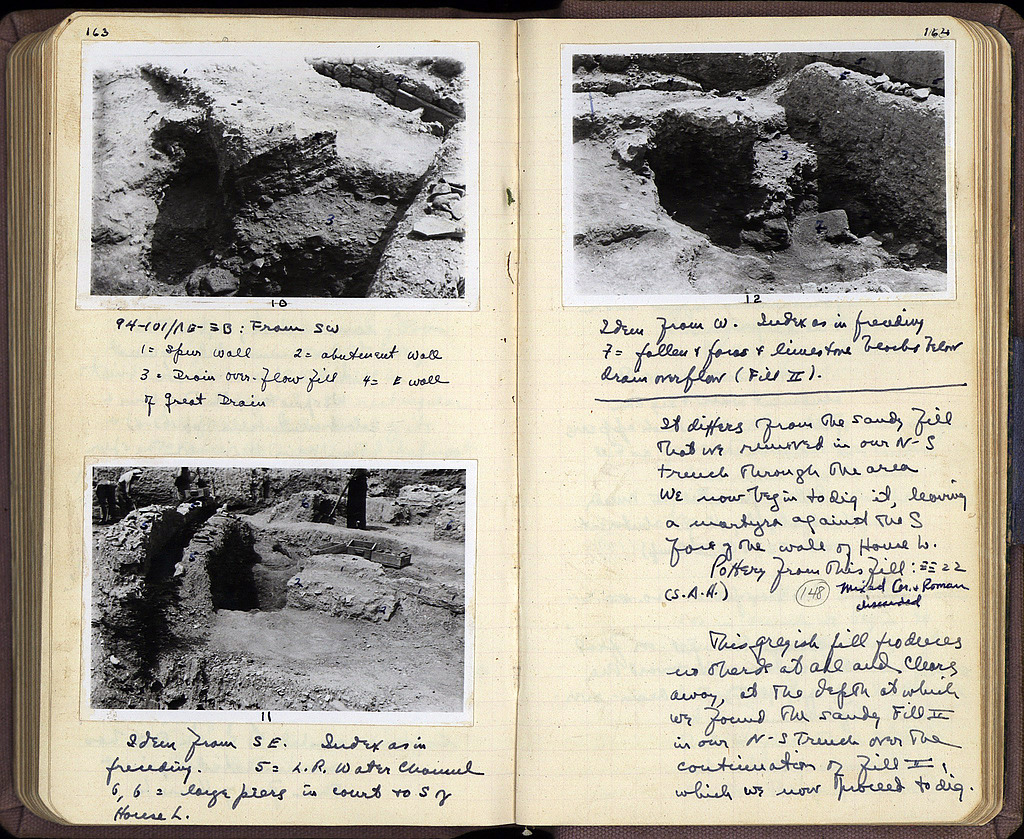 163
10
94-101/ΛΘ-ΞΒ: From SW
1= Spur wall 2= abutment wall
3= Drain over-flow fill 4= E wall
of Great Drain
11
Idem from SE. Index as in
preceding. 5= L.R. Water Channel
6, 6 = large piers in court to S of
House L.
164
12
Idem from W. Index as in preceding
7= fallen poros & limestone blocks below
drain overflow (Fill II).
It differs from the sandy fill
that we removed in our N-S
trench through the area
We now begin to dig it, leaving
a martyra against the S
face of the wall of House L.
Pottery from this fill: ΞΞ 22
(S.A.H.) 148 Mixed Cor. & Roman
discarded
This greyish fill produces
no sherds at all and clears
away, at the depth at which
we found the sandy Fill II
in our N-S Trench over the
continuation of Fill II,
which we now proceed to dig.